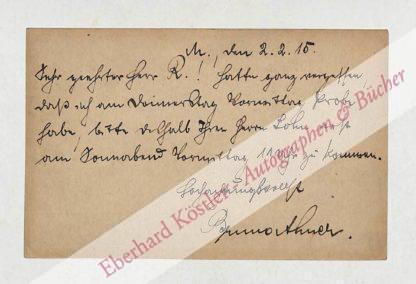 M., den 2.2.15.
Sehr geehrter Herr R.! Hatte ganz vergessen,
daß ich am Donnerstag Vormittag Probe
habe, bitte deshalb Ihren Herrn Sohn erst
am Sonnabend Vormittag 11 Uhr zu kommen.
Hochachtungsvollst
Eberhard Köstler - Autographen & Bücher